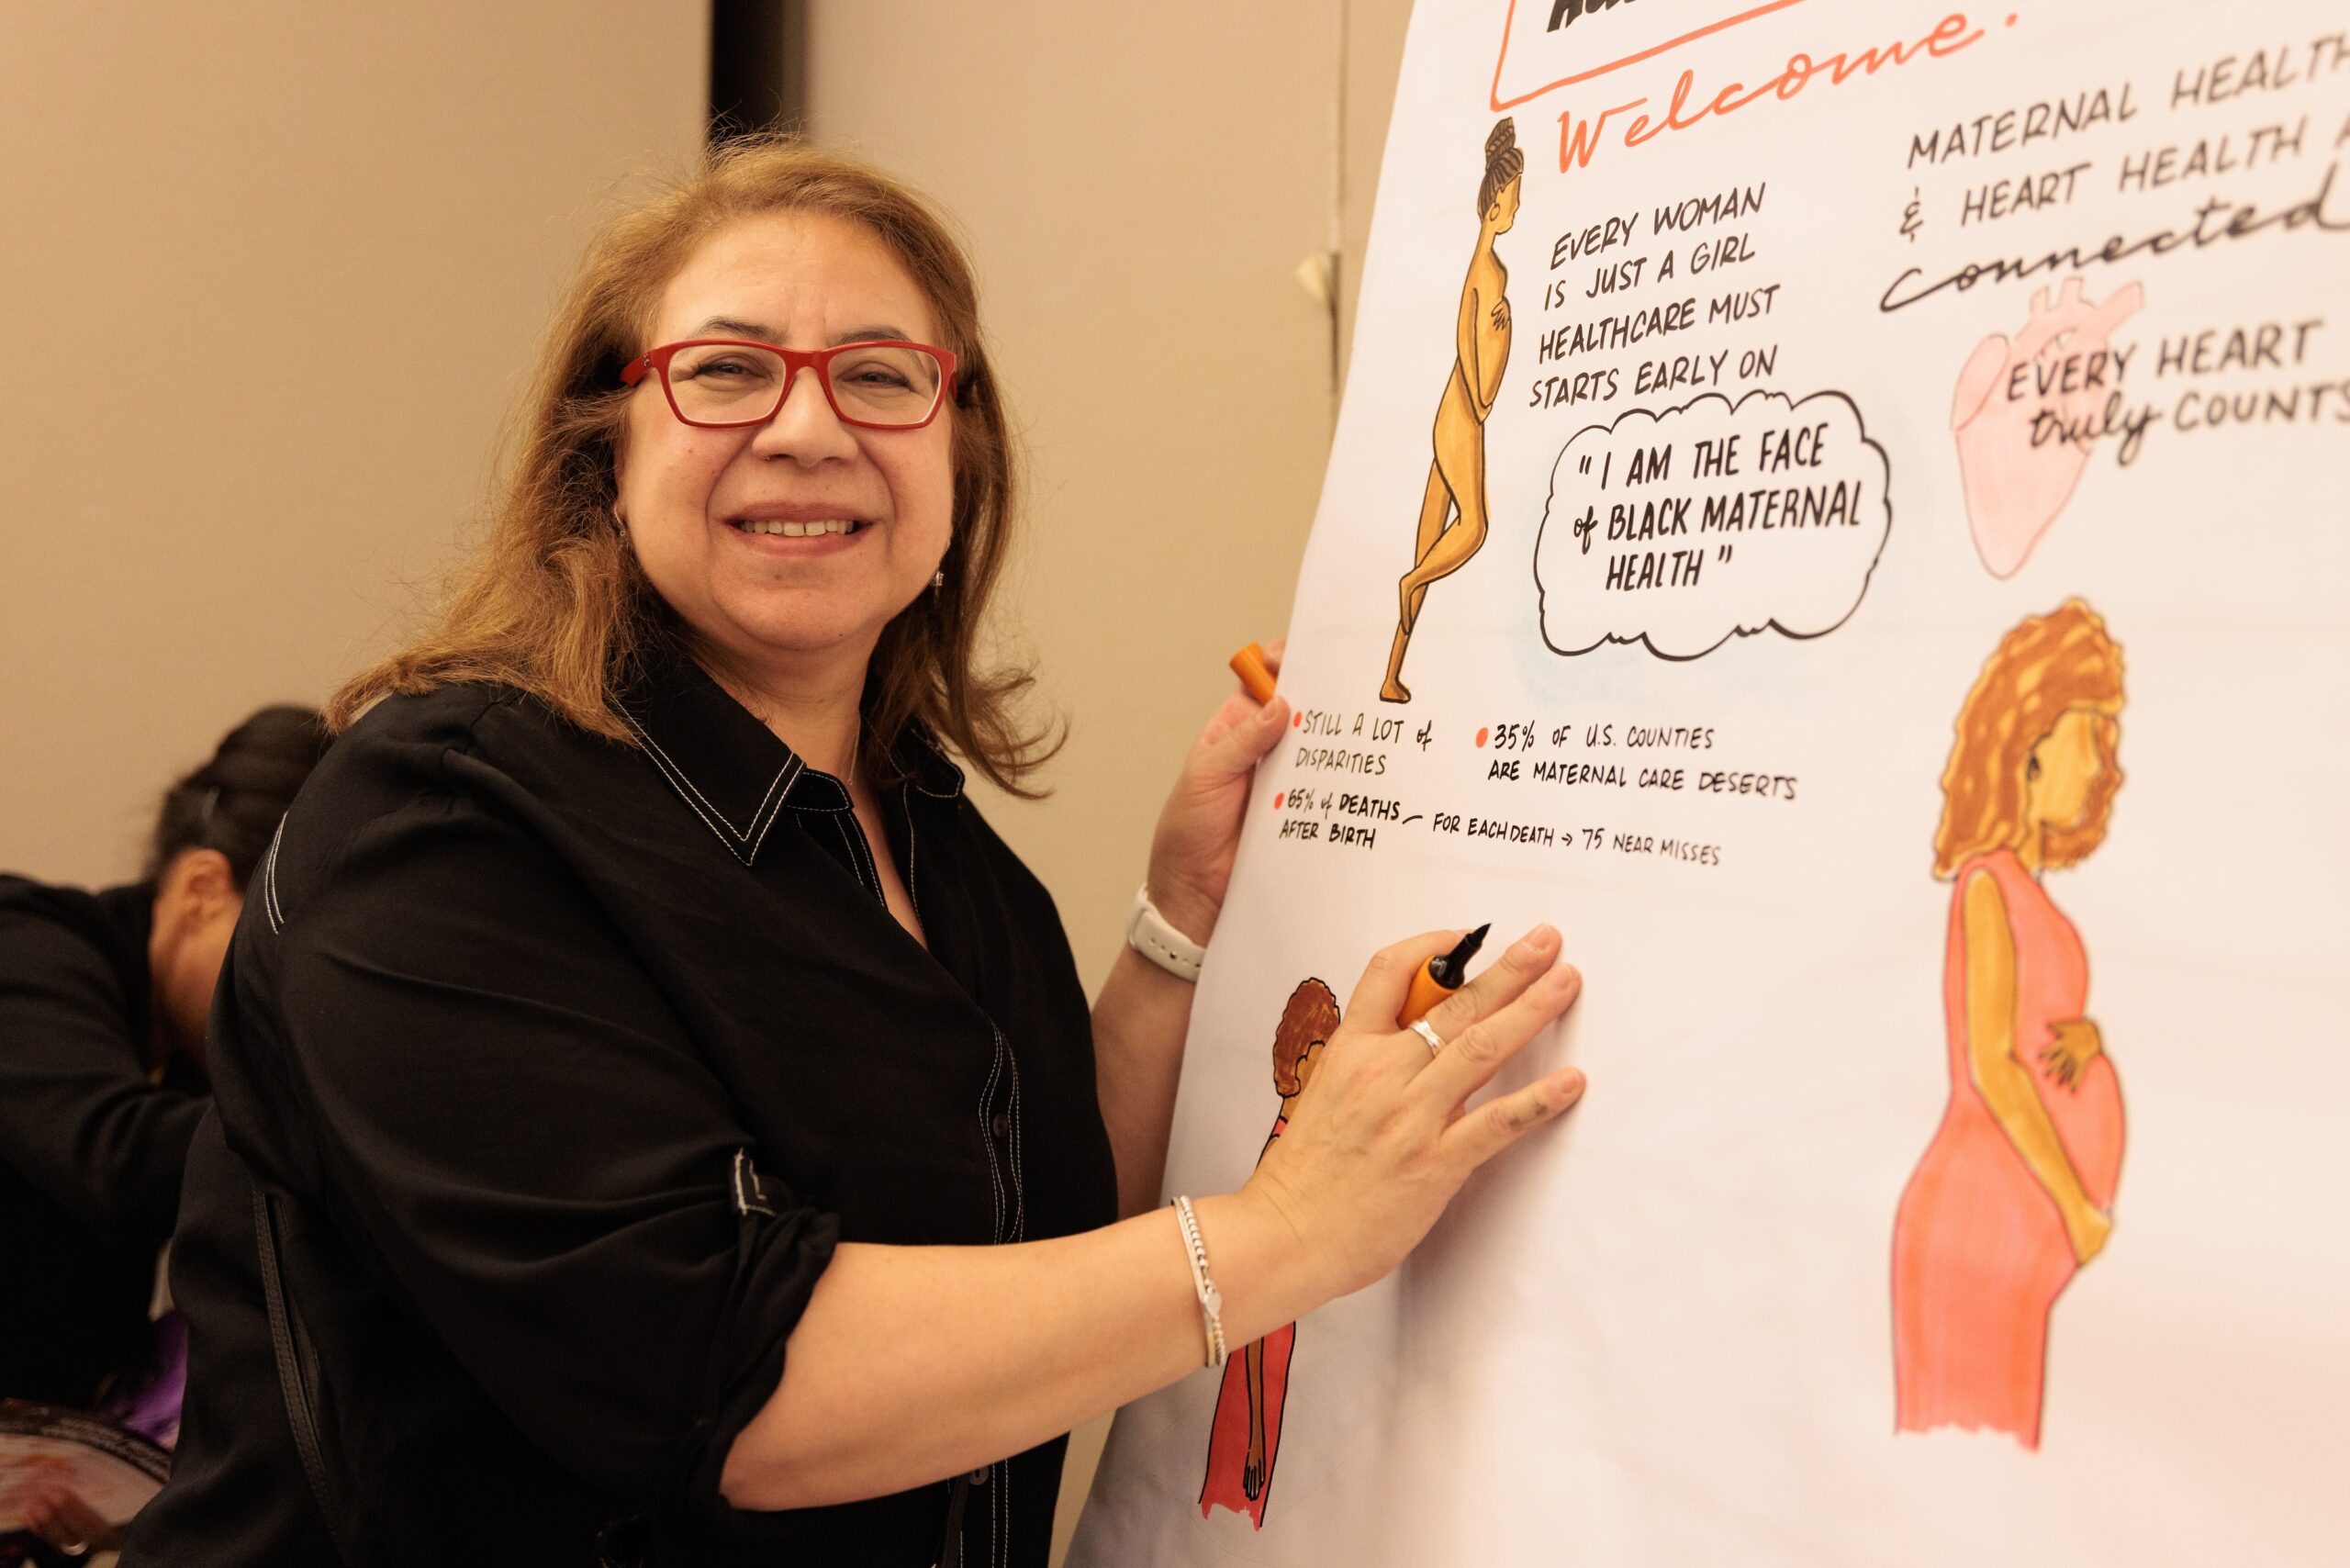 Welcome!
EVERY WOMAN
IS JUST A GIRL
HEALTHCARE MUST
STARTS EARLY ON
"I AM THE FACE
of BLACK MATERNAL
HEALTH"
MATERNAL HEALTH
& HEART HEALTH
connected
EVERY HEART
truly COUNTS
• STILL A LOT of
DISPARITIES
• 35% OF U.S. COUNTIES
ARE MATERNAL CARE DESERTS
• 65% of DEATHS
AFTER BIRTH
FOR EACH DEATH → 75 NEAR MISSES